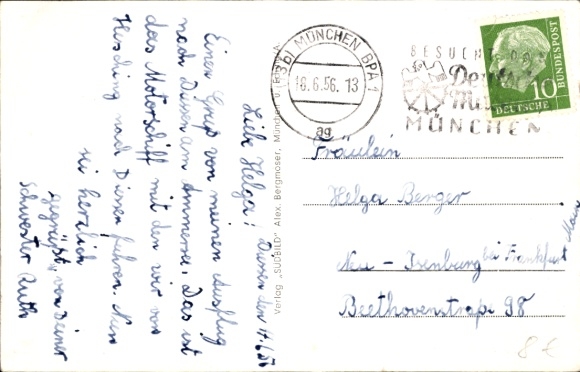 Liebe Helga! Diessen den 17.6.56
Einen Gruß von meinem Ausflug
nach Diessen am Ammersee. Das ist
das Motorschiff mit den wir von
Hersching nach Diessen fuhren. Nun
sei herzlich
gegrüßt von Deiner
Schwester Ruth
Verlag „SÜDBILD" Alex. Bergmoser, München u.
(13b) MÜNCHEN BPA 1
18.6.56. 13
ag
BESUCHT DAS
Deutsche
Museum
MÜNCHEN
10
DEUTSCHE
BUNDESPOST
Fräulein
Helga Berger
Neu-Isenburg bei Frankfurt Main
Beethovenstraße 98
8 €